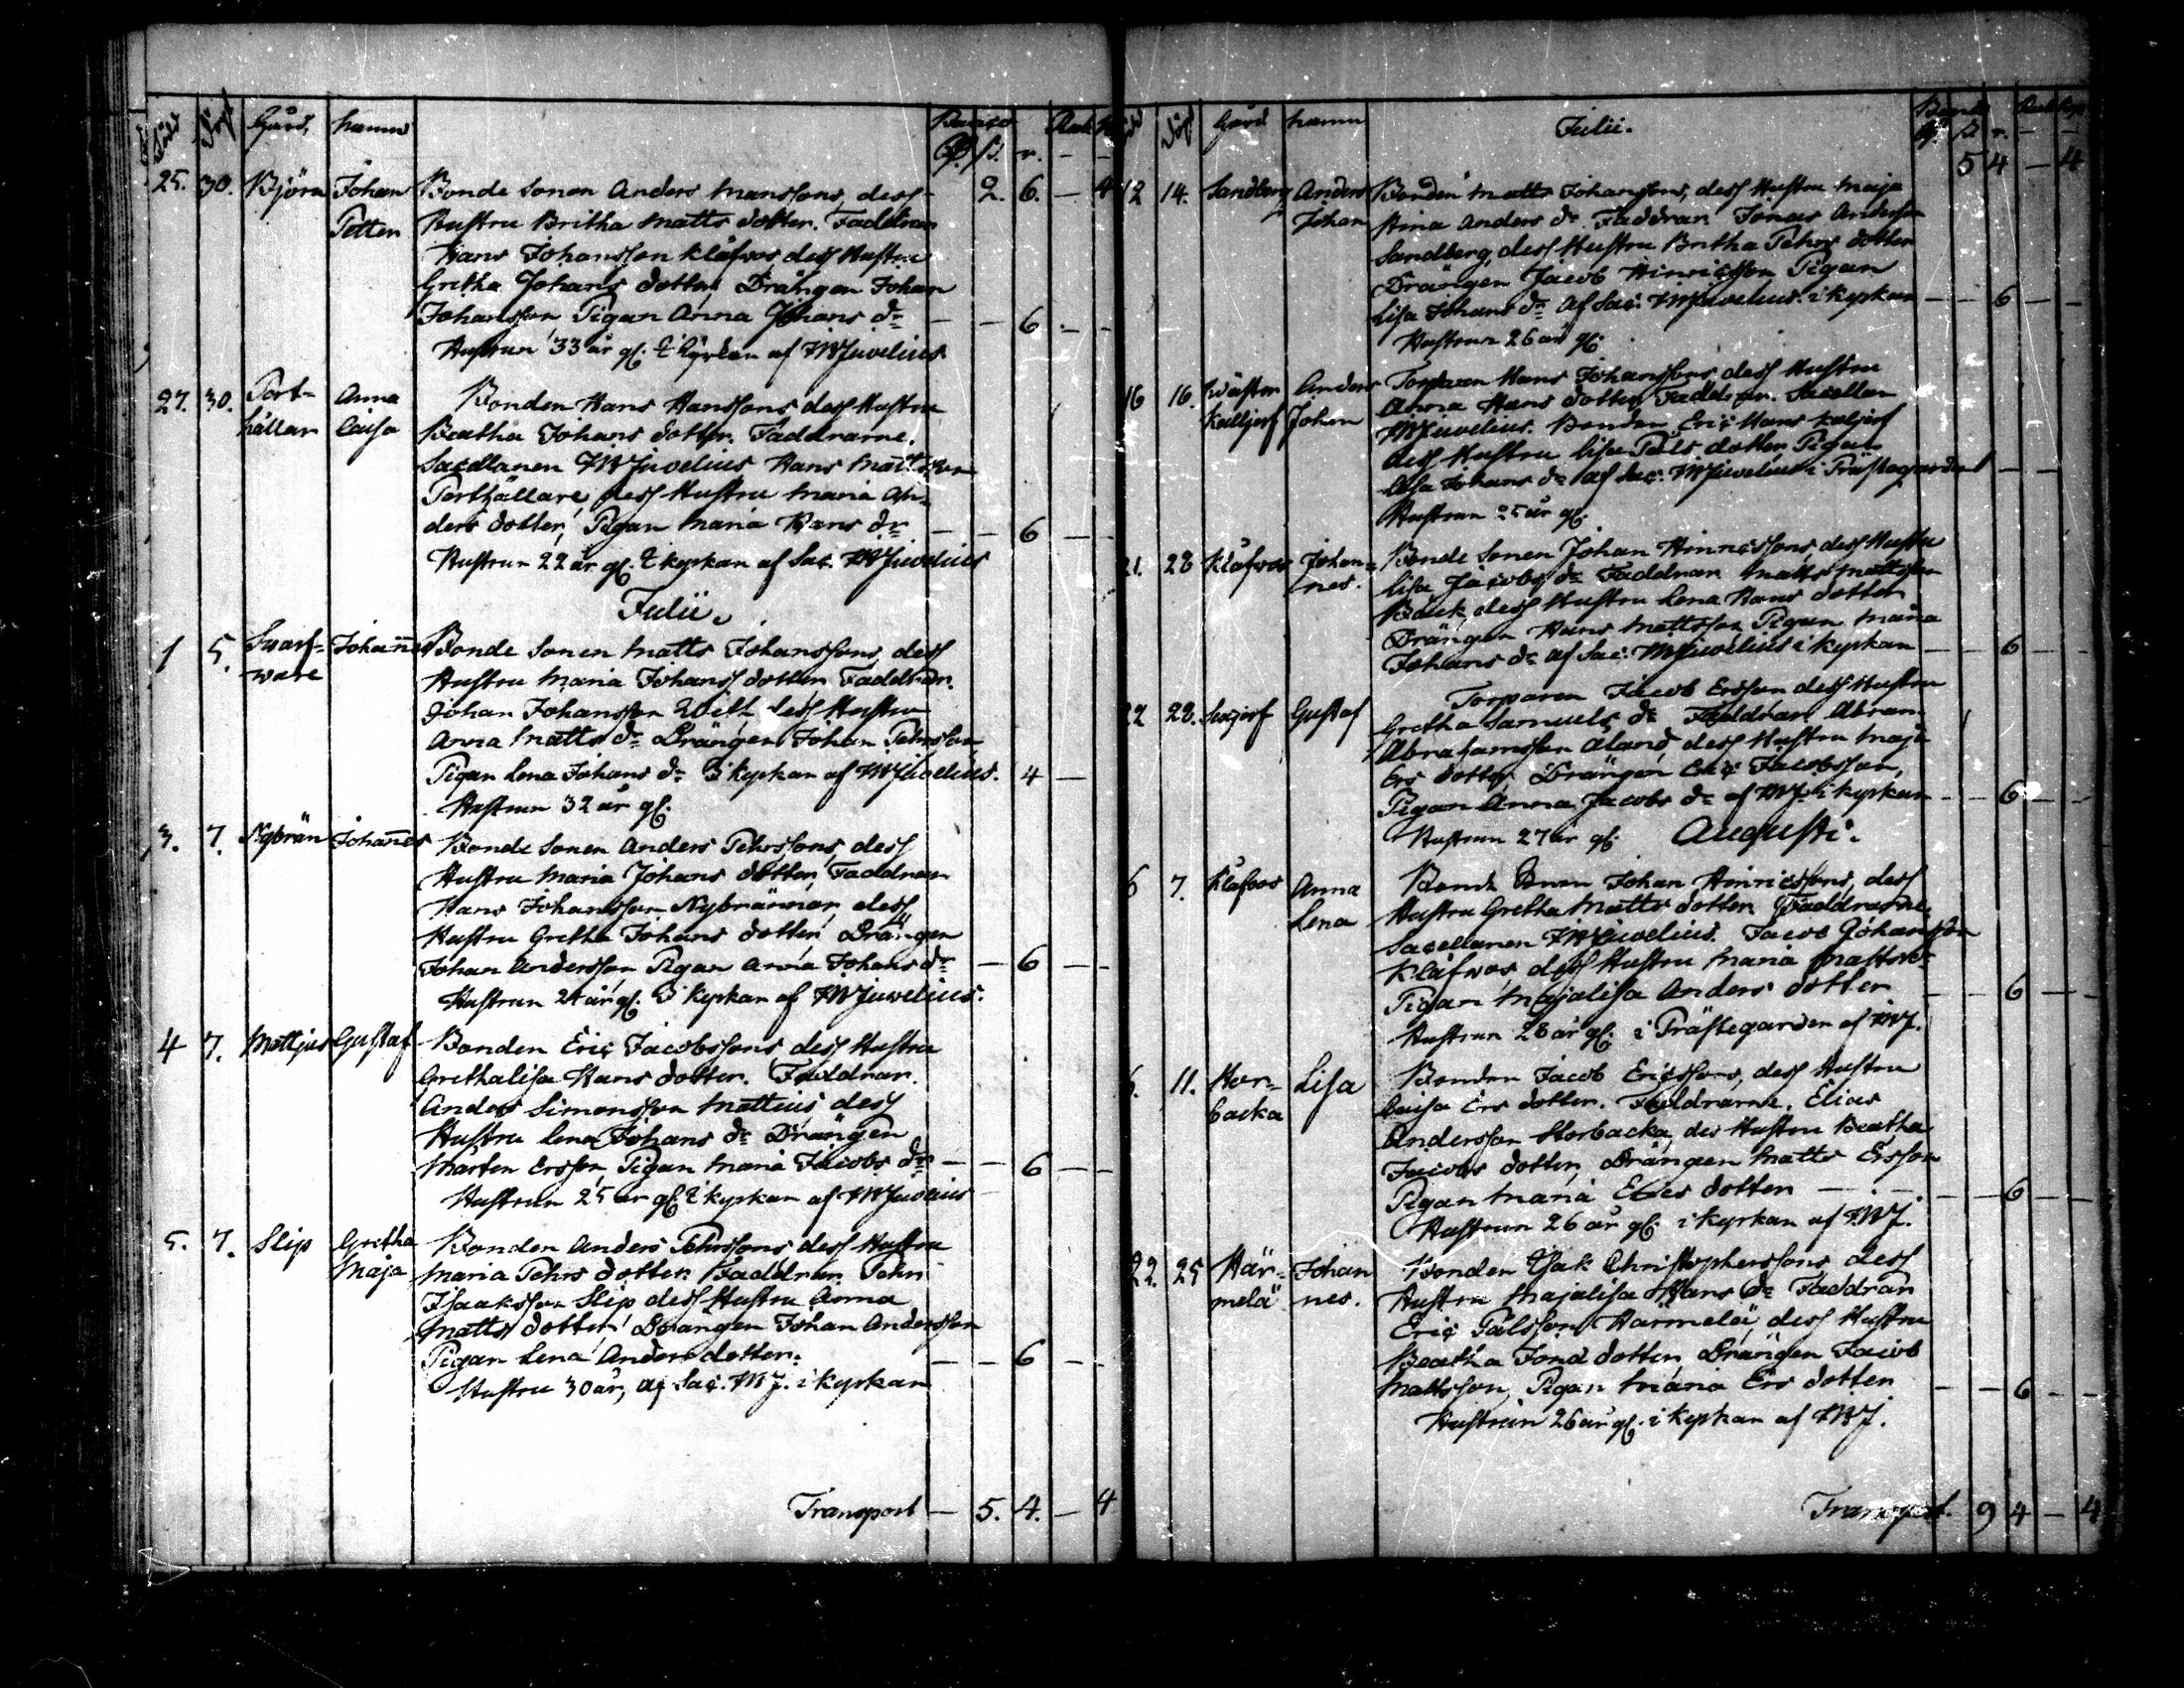 Född Döpt Gård, namn Banco Rub K
ß. r. — —
25. 30. Björn Johan Bonde Sonen Anders Manssons, dess 2. 6. — 4
Petter Hustru Britha Matts dotter. Faddran
Hans Johansson Klåfvos dess Hustru
Gretha Johans dotter Drängen Johan
Johansson Pigan Anna Johans dr — — 6 — —
Hustrun 33 år gl. i kyrkan af FWJuvelius
27. 30. Port- Anna Bonden Hans Hanssons dess Hustru
hällar Caisa Beatha Johans dotter. Faddrarne.
Sacellanen FWJuvelius Hans Mattsson
Porthällare, dess Hustru Maria An-
ders dotter, Pigan Maria Hans dr — — 6 — —
Hustrun 22 år gl. i kyrkan af Sac. FWJuvelius
Julii.
1 5. Svart- Johannes Bonde Sonen Matts Johanssons, dess
ware Hustru Maria Johans dotter Faddran.
Johan Johansson Witt dess Hustru
Anna Matts dr Drängen Johan Pehrsson
Pigan Lena Johans dr i kyrkan af FWJuvelius. 4 —
Hustrun 32 år gl.
3. 7. Nybrän Johannes Bonde Sonen Anders Pehrssons, dess
Hustru Maria Johans dotter, Faddran
Hans Johansson Nybrännar, dess
Hustru Gretha Johans dotter Drängen
Johan Andersson Pigan Anna Johans dr — 6 — —
Hustrun 21 år gl. i kyrkan af FWJuvelius.
4 7. Mattjus Gustaf Bonden Eric Jacobssons dess Hustru
Grethalisa Hans dotter. Faddran.
Anders Simonsson Mattius dess
Hustru Lena Johans dr Drängen
Mårten Ersson, Pigan Maria Jacobs dr — — 6 — —
Hustrun 25 år gl. i kyrkan af FWJuvelius
5. 7. Slip Gretha Bonden Anders Pehrssons dess Hustru
Maja Maria Pehrs dotter. Faddran Pehr
Isaaksson Slip dess Hustru Anna
Matts dotter, Drangen Johan Andersson
Pigan Lena Anders dotter. — — 6 — —
Hustru 30 år, af Sac. FWJ. i kyrkan
Transport — 5. 4. — 4
Döpt Gård namn Julii. Banco Rub Kop
ß r. — —
5 4 — 4
12 14. Sandberg Anders Bonden Matts Johanssons, dess Hustru Maja
Johan Stina Anders dr Faddran Jonas Andersson
Sandberg, dess Hustru Britha Pehrs dotter
Drängen Jacob Hinricsson Pigan
Lisa Johans dr af Sac. FWJuvelius. i kyrkan — — 6 — —
Hustrun 26 år gl.
16 16. Wäster Anders Torparen Hans Johanssons dess Hustru
Kålljerf Johan Anna Hans dotter, Faddran. Sacellan
FWJuvelius. Bonden Eric Hans Koljerf
dess Hustru Lisa Påls dotter, Pigan
Lisa Johans dr af Sac. FWJuvelius i Prästegården — —
Hustrun 25 år gl.
21. 28 Klåfvos Johan- Bonde Sonen Johan Hinricssons, dess Hustru
nes. Lisa Jacobs dr Faddran Matts Mattsson
Back, dess Hustru Lena Hans dotter
Drängen Hans Mattsson Pigan Maria
Johans dr af Sac. FWJuvelius i kyrkan — — 6 — —
22 28. Gustaf Torparen Jacob Ersson dess Hustru
Gretha Samuels dr Faddran Abram
Abrahamsson Åland dess Hustru Maja
Ers dotter, Drängen Eric Jacobsson,
Pigan Anna Jacobs dr af FWJ. i kyrkan — — 6 — —
Hustrun 27 år gl. Augusti.
6 7. Klåfvos Anna Bonde Sonen Johan Hinricssons, dess
Lena Hustru Gretha Matts dotter, Faddrarne.
Sacellanen FWJuvelius. Jacob Johansson
Klåfvos dess Hustru Maria Matts dr
Pigan Majalisa Anders dotter — — 6 — —
Hustrun 28 år gl. i Prästegarden af FWJ.
11. Stor- Lisa Bonden Jacob Ericssons, dess Hustru
backa Caisa Ers dotter. Faddrarne. Elias
Andersson Storbacka, des Hustru Beatha
Jacobs dotter, Drängen Matts Ersson
Pigan Maria Elies dotter — — 6 — —
Hustrun 26 år gl. i kyrkan af FWJ.
22. 25 Här- Johan Bonden Isak Christopherssons dess
melä nes. Hustru Majalisa Hans dr Faddran
Eric Pålsson Härmelä, dess Hustru
Beatha Jons dotter, Drängen Jacob
Mattsson, Pigan Maria Ers dotter — — 6 — —
Hustrun 26 år gl. i kyrkan af FWJ.
Transport. 9 4 — 4